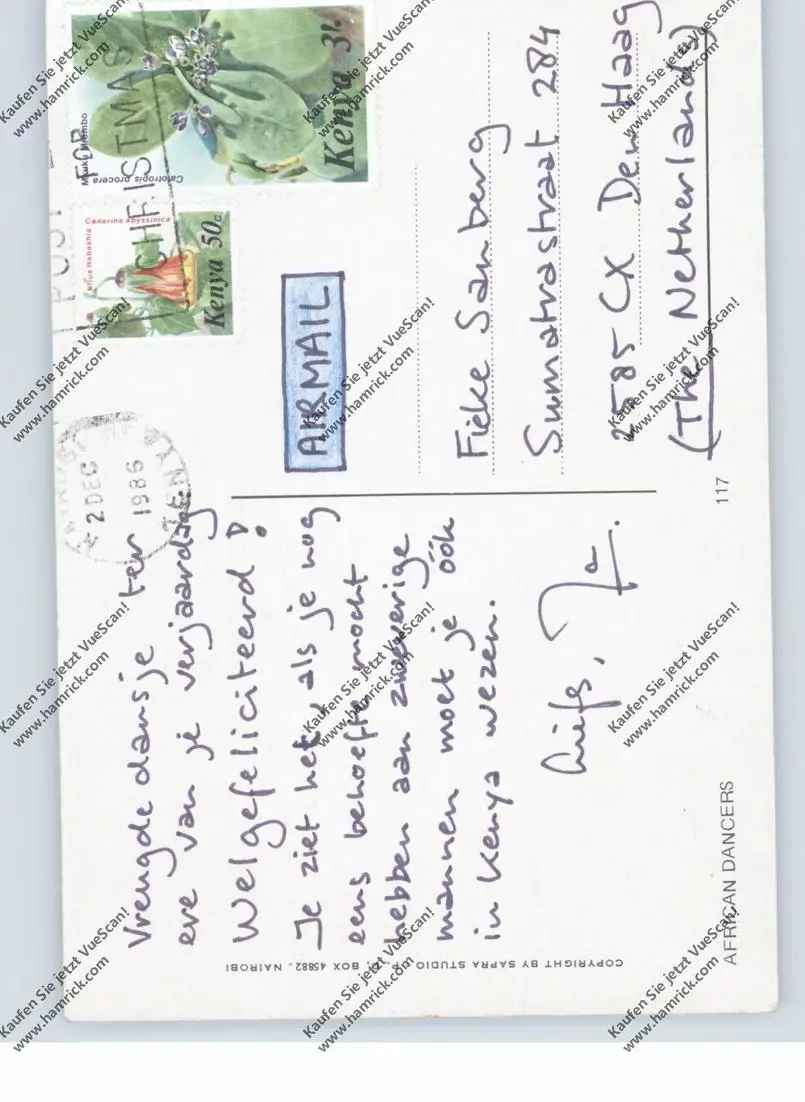 Vreugde dansje ter
ere van je verjaardag.
Welgefeliciteerd!
Je ziet het, als je nog
eens behoefte mocht
hebben aan zweverige
mannen moet je óók
in Kenya wezen.
liefs,
AFRICAN DANCERS
117
COPYRIGHT BY SAPRA STUDIO P.O. BOX 45882, NAIROBI
2 DEC
1986
KENYA
POST
FOR
CHRISTMAS
Mpuku
Calotropis procera
Kenya 3/-
Canarina abyssinica
Kenya 50c
AIRMAIL
Fieke Sanberg
Sumatrastraat 284
2585 CX Den Haag
(The Netherlands)
Kaufen Sie jetzt VueScan!
www.hamrick.com